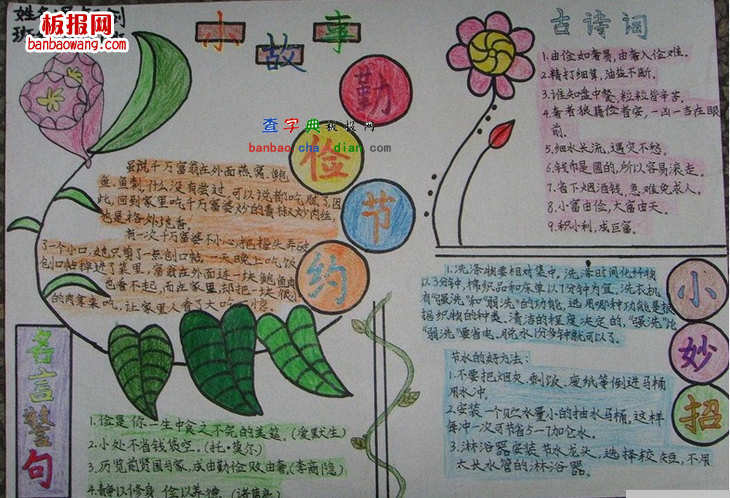 板报网
banbaowang.com
小故事
查字典板报网
banbao cha dian.com
勤俭节约
虽说千万富翁在外面燕窝、鲍
鱼、鱼刺,什么没有尝过,可以说都吃腻了,因
此,回到家里吃千万富婆妙的青椒又妙肉丝,
也是格外挑香
有一次千万富婆不小心,把指头弄破
了一个小口,她只有了一点创口帖,一天晚上吃饭
创口帖掉进了菜里,富翁在外面连一块鲍鱼肉
也看不起,而在家里却把一块很小
的肉拿来吃,让家里人看了大吃一惊。
名言警句
1.俭是你一生中食之不完的美筵。(爱默生)
2.小处不省钱袋空。(托·爱尔)
3.历览前贤国与家,成由勤俭败由奢。(李商隐)
4.静以修身 俭以养德
古诗词
1.由俭如奢易,由奢入俭难。
2.精打细算,油盐不断。
3.谁知盘中餐,粒粒皆辛苦。
4.奢者狼藉俭者安,一凶一吉在眼
前。
5.细水长流,遇灾不愁。
6.钱币是圆的,所以容易滚走。
7.省下烟酒钱,急难免求人。
8.小富由俭,大富由天。
9.积小利,成巨富。
小妙招
1.洗涤物要相对集中,洗涤时间化纤物
以3分钟,棉织品和床单以7分钟为宜,洗衣机
有“强洗”和“弱洗”的功能,选用哪种功能是根
据织物的种类,清洁的程度决定的,“强洗”比
“弱洗”要省电,脱水1分多钟就可以了。
节水的好方法:
1.不要把烟灰、剩饭、废纸等倒进马桶
用水冲。
2.安装一个贮水量小的抽水马桶,这样
每冲一次可节省5—7加仑水。
3.淋浴器安装节水龙头,选择校短,不用
太长水管的淋浴器。